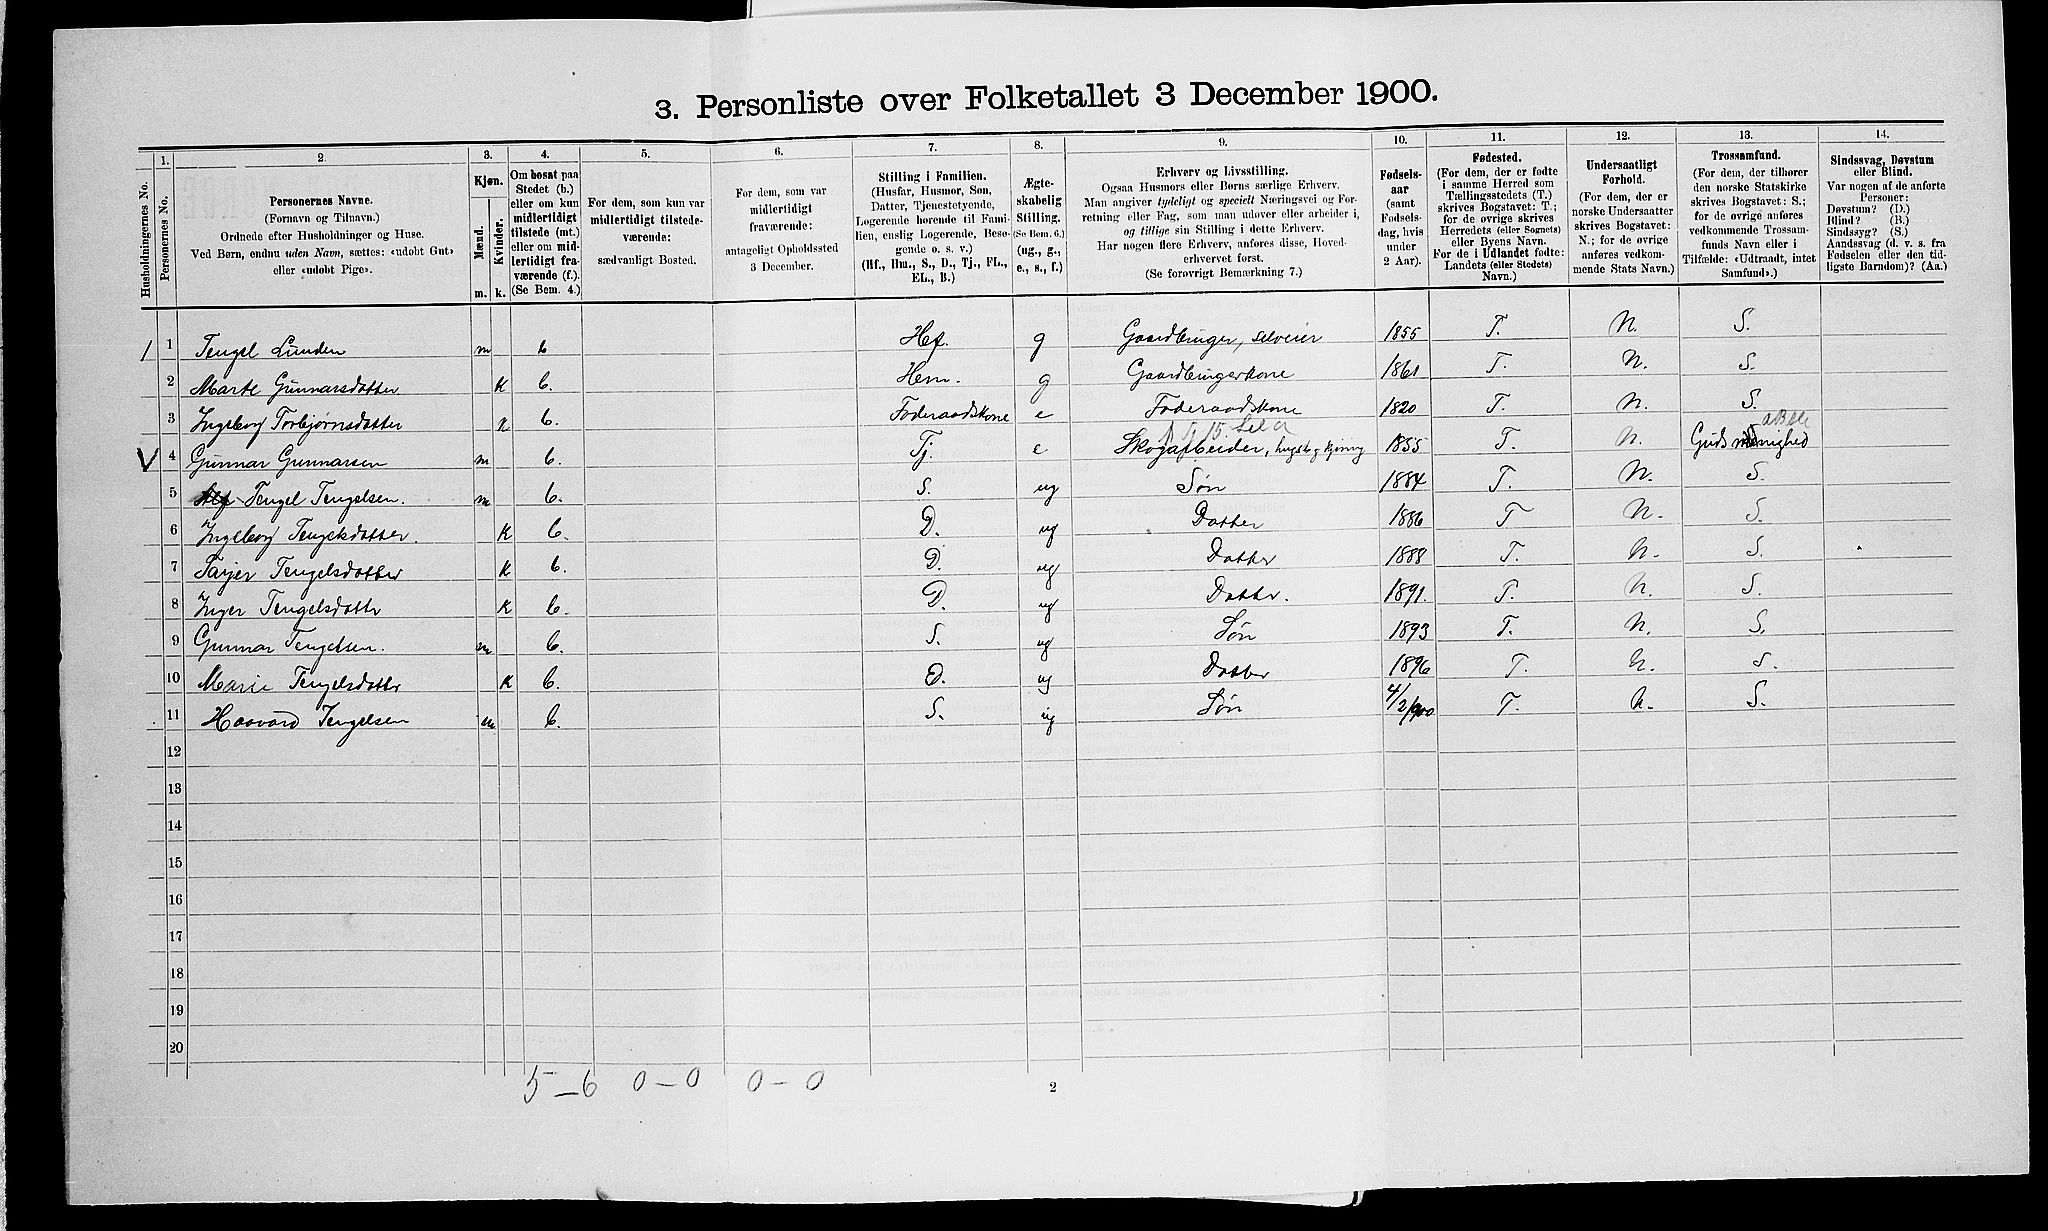 3. Personliste over Folketallet 3 December 1900.
Husholdningernes No.
1.
Personernes No.
2.
Personernes Navne.
(Fornavn og Tilnavn.)
Ordnede efter Husholdninger og Huse.
Ved Børn, endnu uden Navn, sættes: «udøbt Gut»
eller «udøbt Pige».
3.
Kjøn.
Mænd.
Kvinder.
m. k.
4.
Om bosat paa
Stedet (b.)
eller om kun
midlertidigt
tilstede (mt.)
eller om mid-
lertidigt fra-
værende (f.).
(Se Bem. 4.)
5.
For dem, som kun var
midlertidigt tilstede-
værende:
sædvanligt Bosted.
6.
For dem, som var
midlertidigt
fraværende:
antageligt Opholdssted
3 December.
7.
Stilling i Familien.
(Husfar, Husmor, Søn,
Datter, Tjenestetyende,
Logerende hørende til Fami-
lien, enslig Logerende, Besø-
gende o. s. v.)
(Hf., Hm., S., D., Tj., FL.,
EL., B.)
8.
Ægte-
skabelig
Stilling.
(Se Bem. 6.)
(ug., g.,
e., s., f.)
9.
Erhverv og Livsstilling.
Ogsaa Husmors eller Børns særlige Erhverv.
Man angiver tydeligt og specielt Næringsvei og For-
retning eller Fag, som man udøver eller arbeider i,
og tillige sin Stilling i dette Erhverv.
Har nogen flere Erhverv, anføres disse, Hoved-
erhvervet først.
(Se forøvrigt Bemærkning 7.)
10.
Fødsels-
aar
(samt
Fødsels-
dag, hvis
under
2 Aar).
11.
Fødested.
(For dem, der er fødte
i samme Herred som
Tællingsstedets (T.)
skrives Bogstavet: T.;
for de øvrige skrives
Herredets (eller Sognets)
eller Byens Navn.
For de i Udlandet fødte:
Landets (eller Stedets)
Navn.)
12.
Undersaatligt
Forhold.
(For dem, der er
norske Undersaatter
skrives Bogstavet:
N.; for de øvrige
anføres vedkom-
mende Stats Navn.)
13.
Trossamfund.
(For dem, der tilhører
den norske Statskirke
skrives Bogstavet: S.;
for de øvrige anføres
vedkommende Trossam-
funds Navn eller i
Tilfælde: «Udtraadt, intet
Samfund».)
14.
Sindssvag, Døvstum
eller Blind.
Var nogen af de anførte
Personer:
Døvstum? (D.)
Blind? (B.)
Sindssyg? (S.)
Aandssvag (d. v. s. fra
Fødselen eller den tid-
ligste Barndom)? (Aa.)
1 Tengel Lunden m b Hf. g Gaardbruger, selveier 1855 T. N. S.
2 Marte Gunnarsdatter k b. Hm. g Gaardbrugerkone 1861 T. N. S.
3 Ingeborg Torbjørnsdatter k b. Føderaadskone e Føderaadskone 1820 T. N. S.
4 Gunnar Gunnarsen m b. Tj. e Skogarbeider, hugst og kjøring 1855 T. N. Guds menighed
5 Tengel Tengelsen. m b. S. ug Søn 1884 T. N. S.
6 Ingeborg Tengelsdatter. k b. D. ug Datter 1886 T N. S.
7 Tarjer Tengelsdatter k b. D. ug Datter 1888 T. N. S.
8 Inger Tengelsdatter k b. D. ug Datter. 1891. T. N. S.
9 Gunnar Tengelsen. m b. S. ug Søn 1893 T. N. S.
10 Marie Tengelsdatter k b. D. ug Datter 1896 T. N. S.
11 Haavard Tengelsen m b. S. ug Søn 4/2 1900 T. N. S.
12
13
14
15
16
17
18
19
20
5 – 6 0 – 0 0 – 0
2